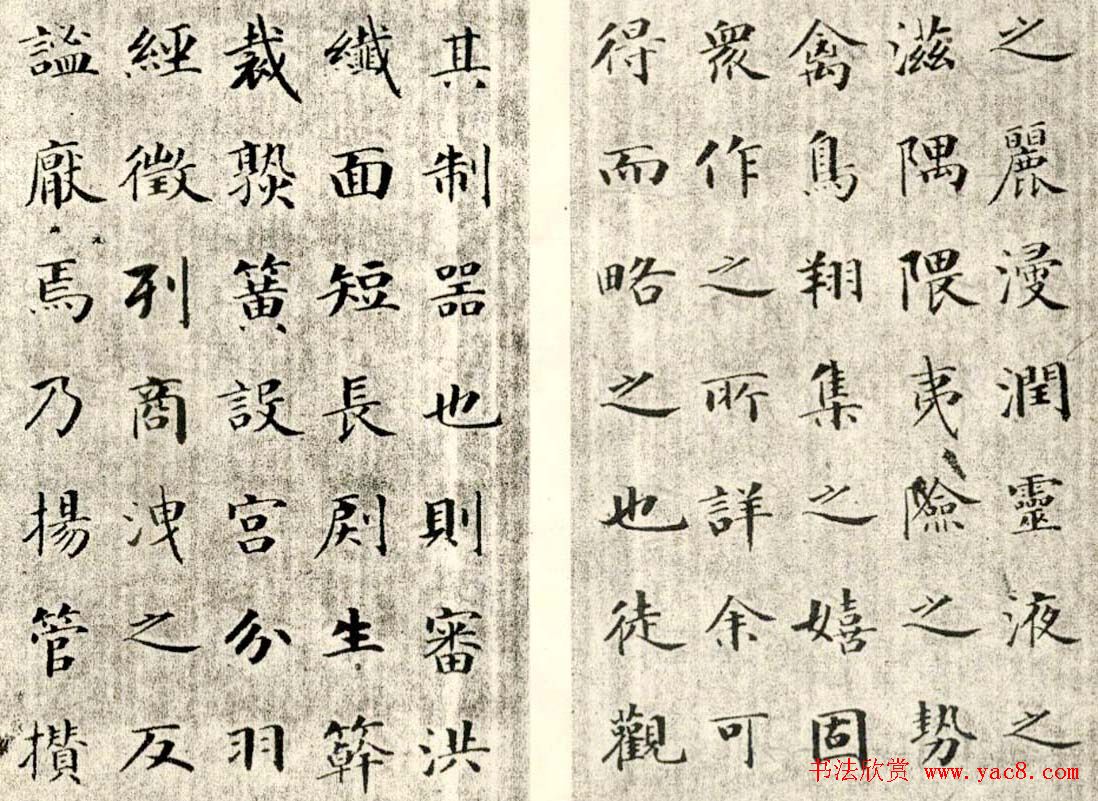 之麗浸潤靈液之
滋隅隈夷險之勢
禽鳥翔集之嬉固
衆作之所詳余可
得而略之也徒觀
其制器也則審洪
纖面短長剫生簳
裁熟簧設宮分羽
經徵列商洩之反
謐厭焉乃揚管攢
书法欣赏 www.yac8.com